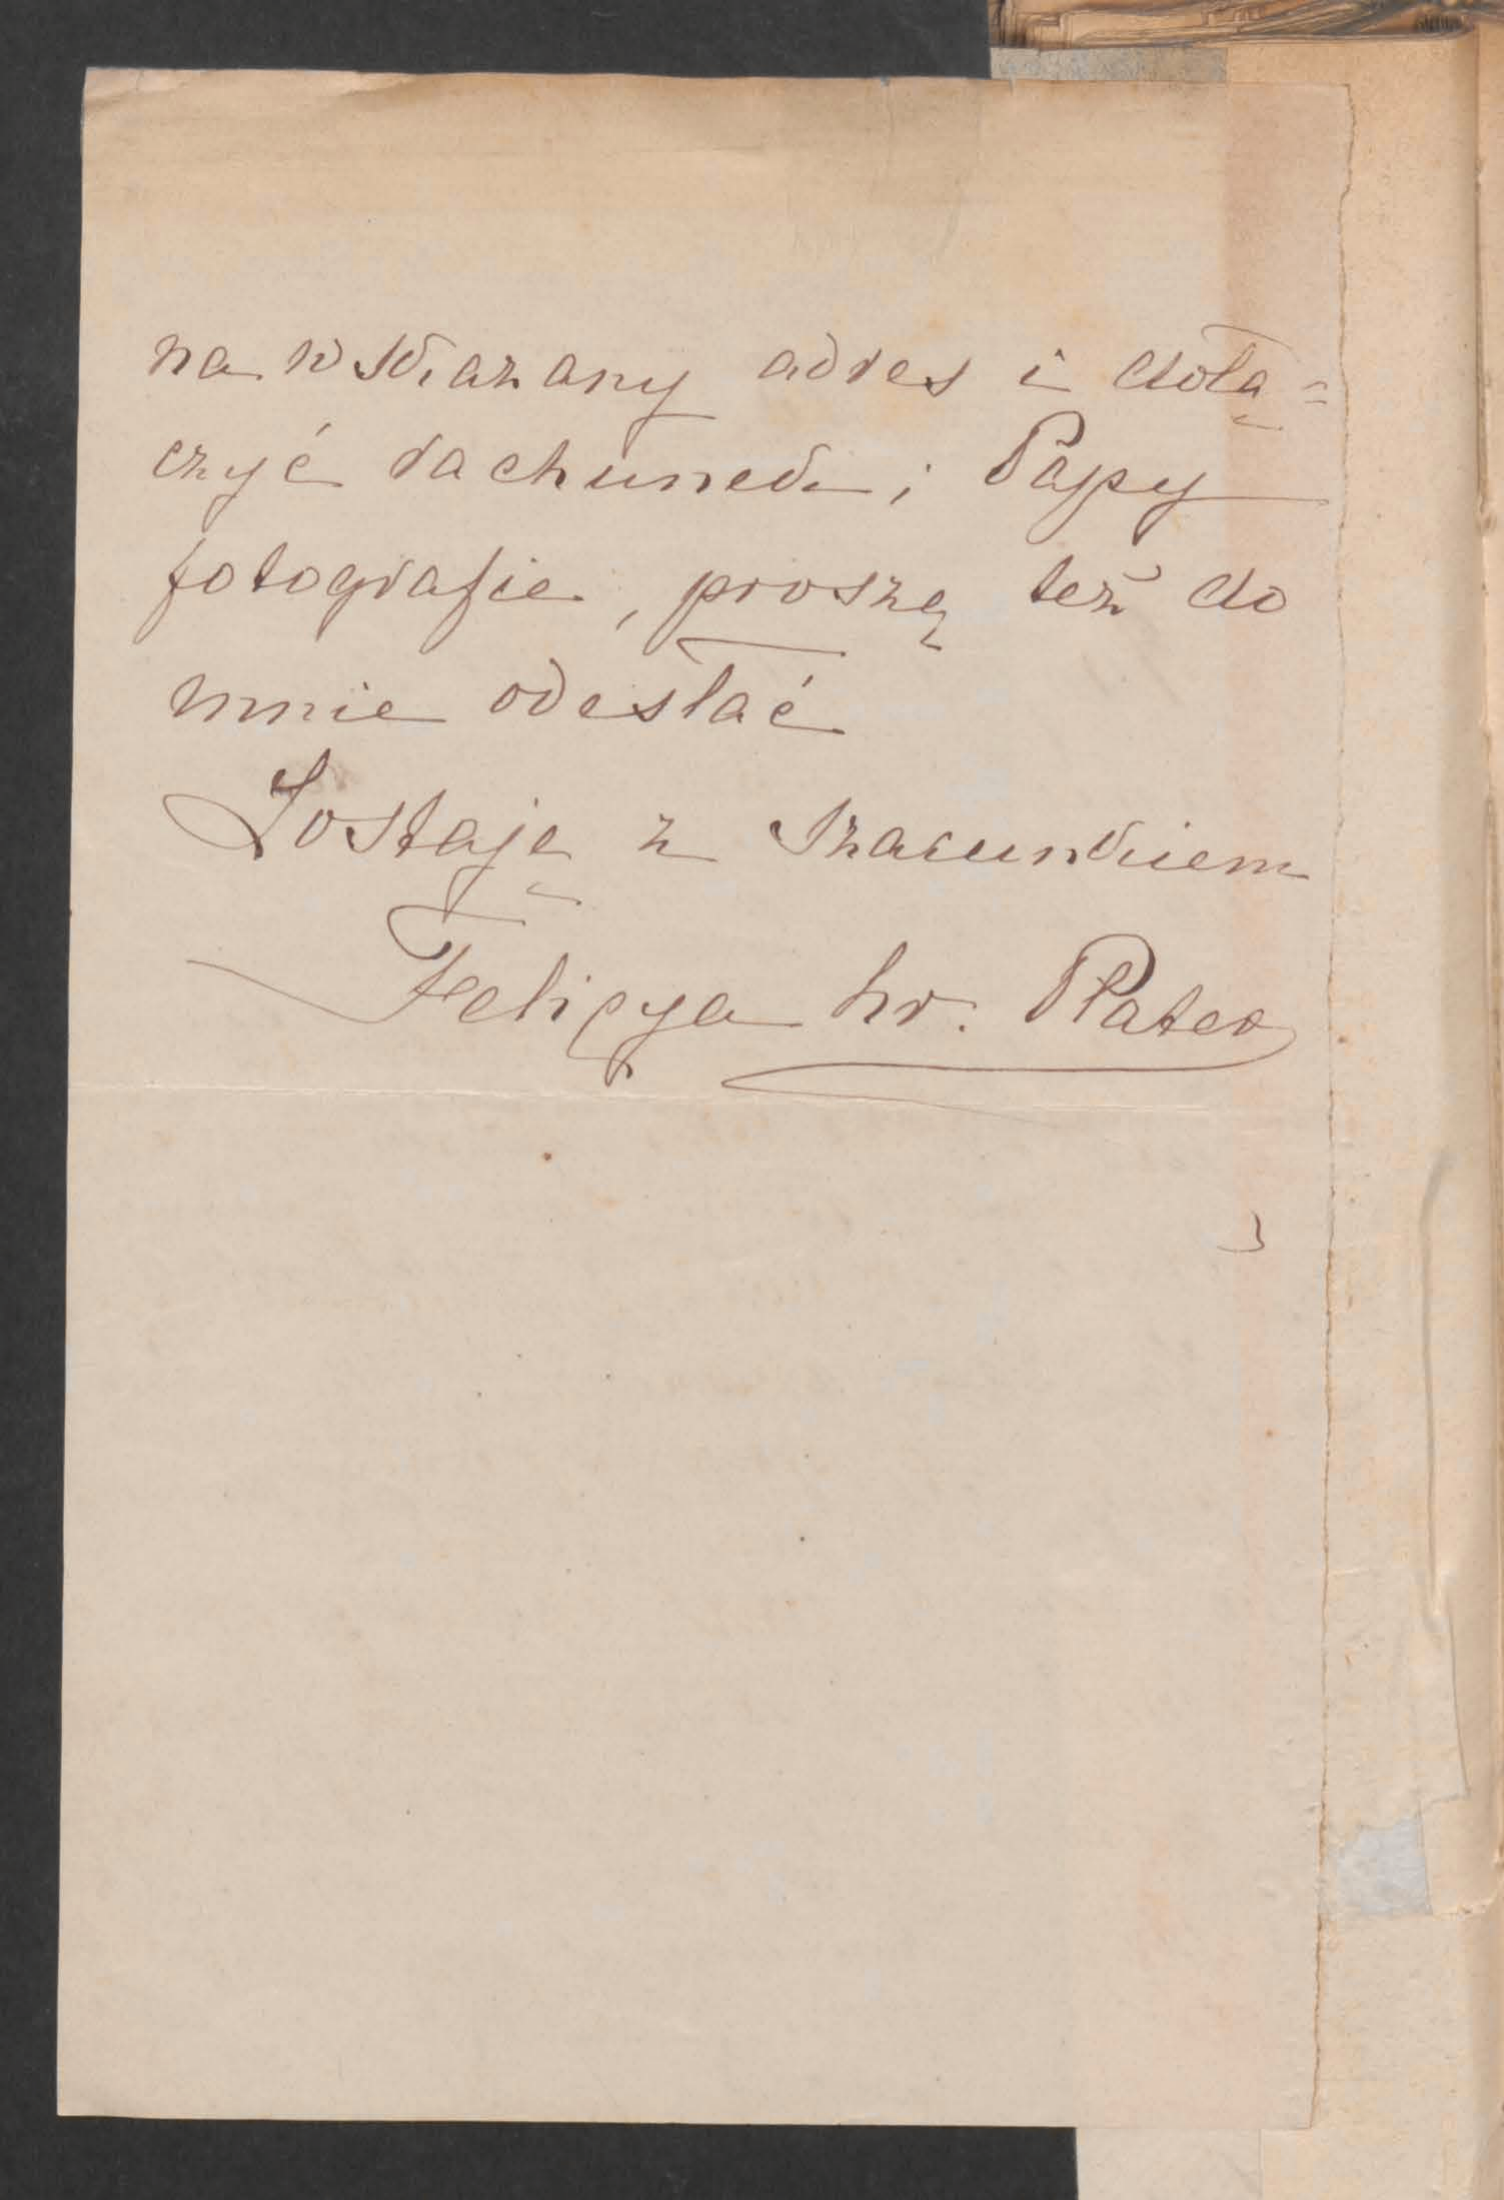 na wskazany adres i dołą=
czyć rachunek; Papy
fotografie, proszę też do
mnie odesłać
Zostaję z szacunkiem
Felicya hr. Plater